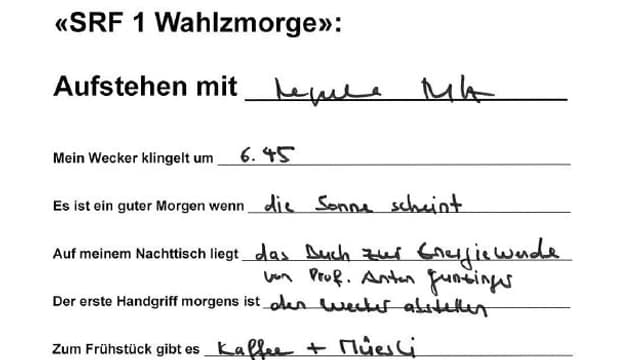 «SRF 1 Wahlzmorge»:
Aufstehen mit Regula
Mein Wecker klingelt um 6.45
Es ist ein guter Morgen wenn die Sonne scheint
Auf meinem Nachttisch liegt das Buch zur Energiewende
von Prof. Anton Gunzinger
Der erste Handgriff morgens ist den Wecker abstellen
Zum Frühstück gibt es Kaffee + Müesli